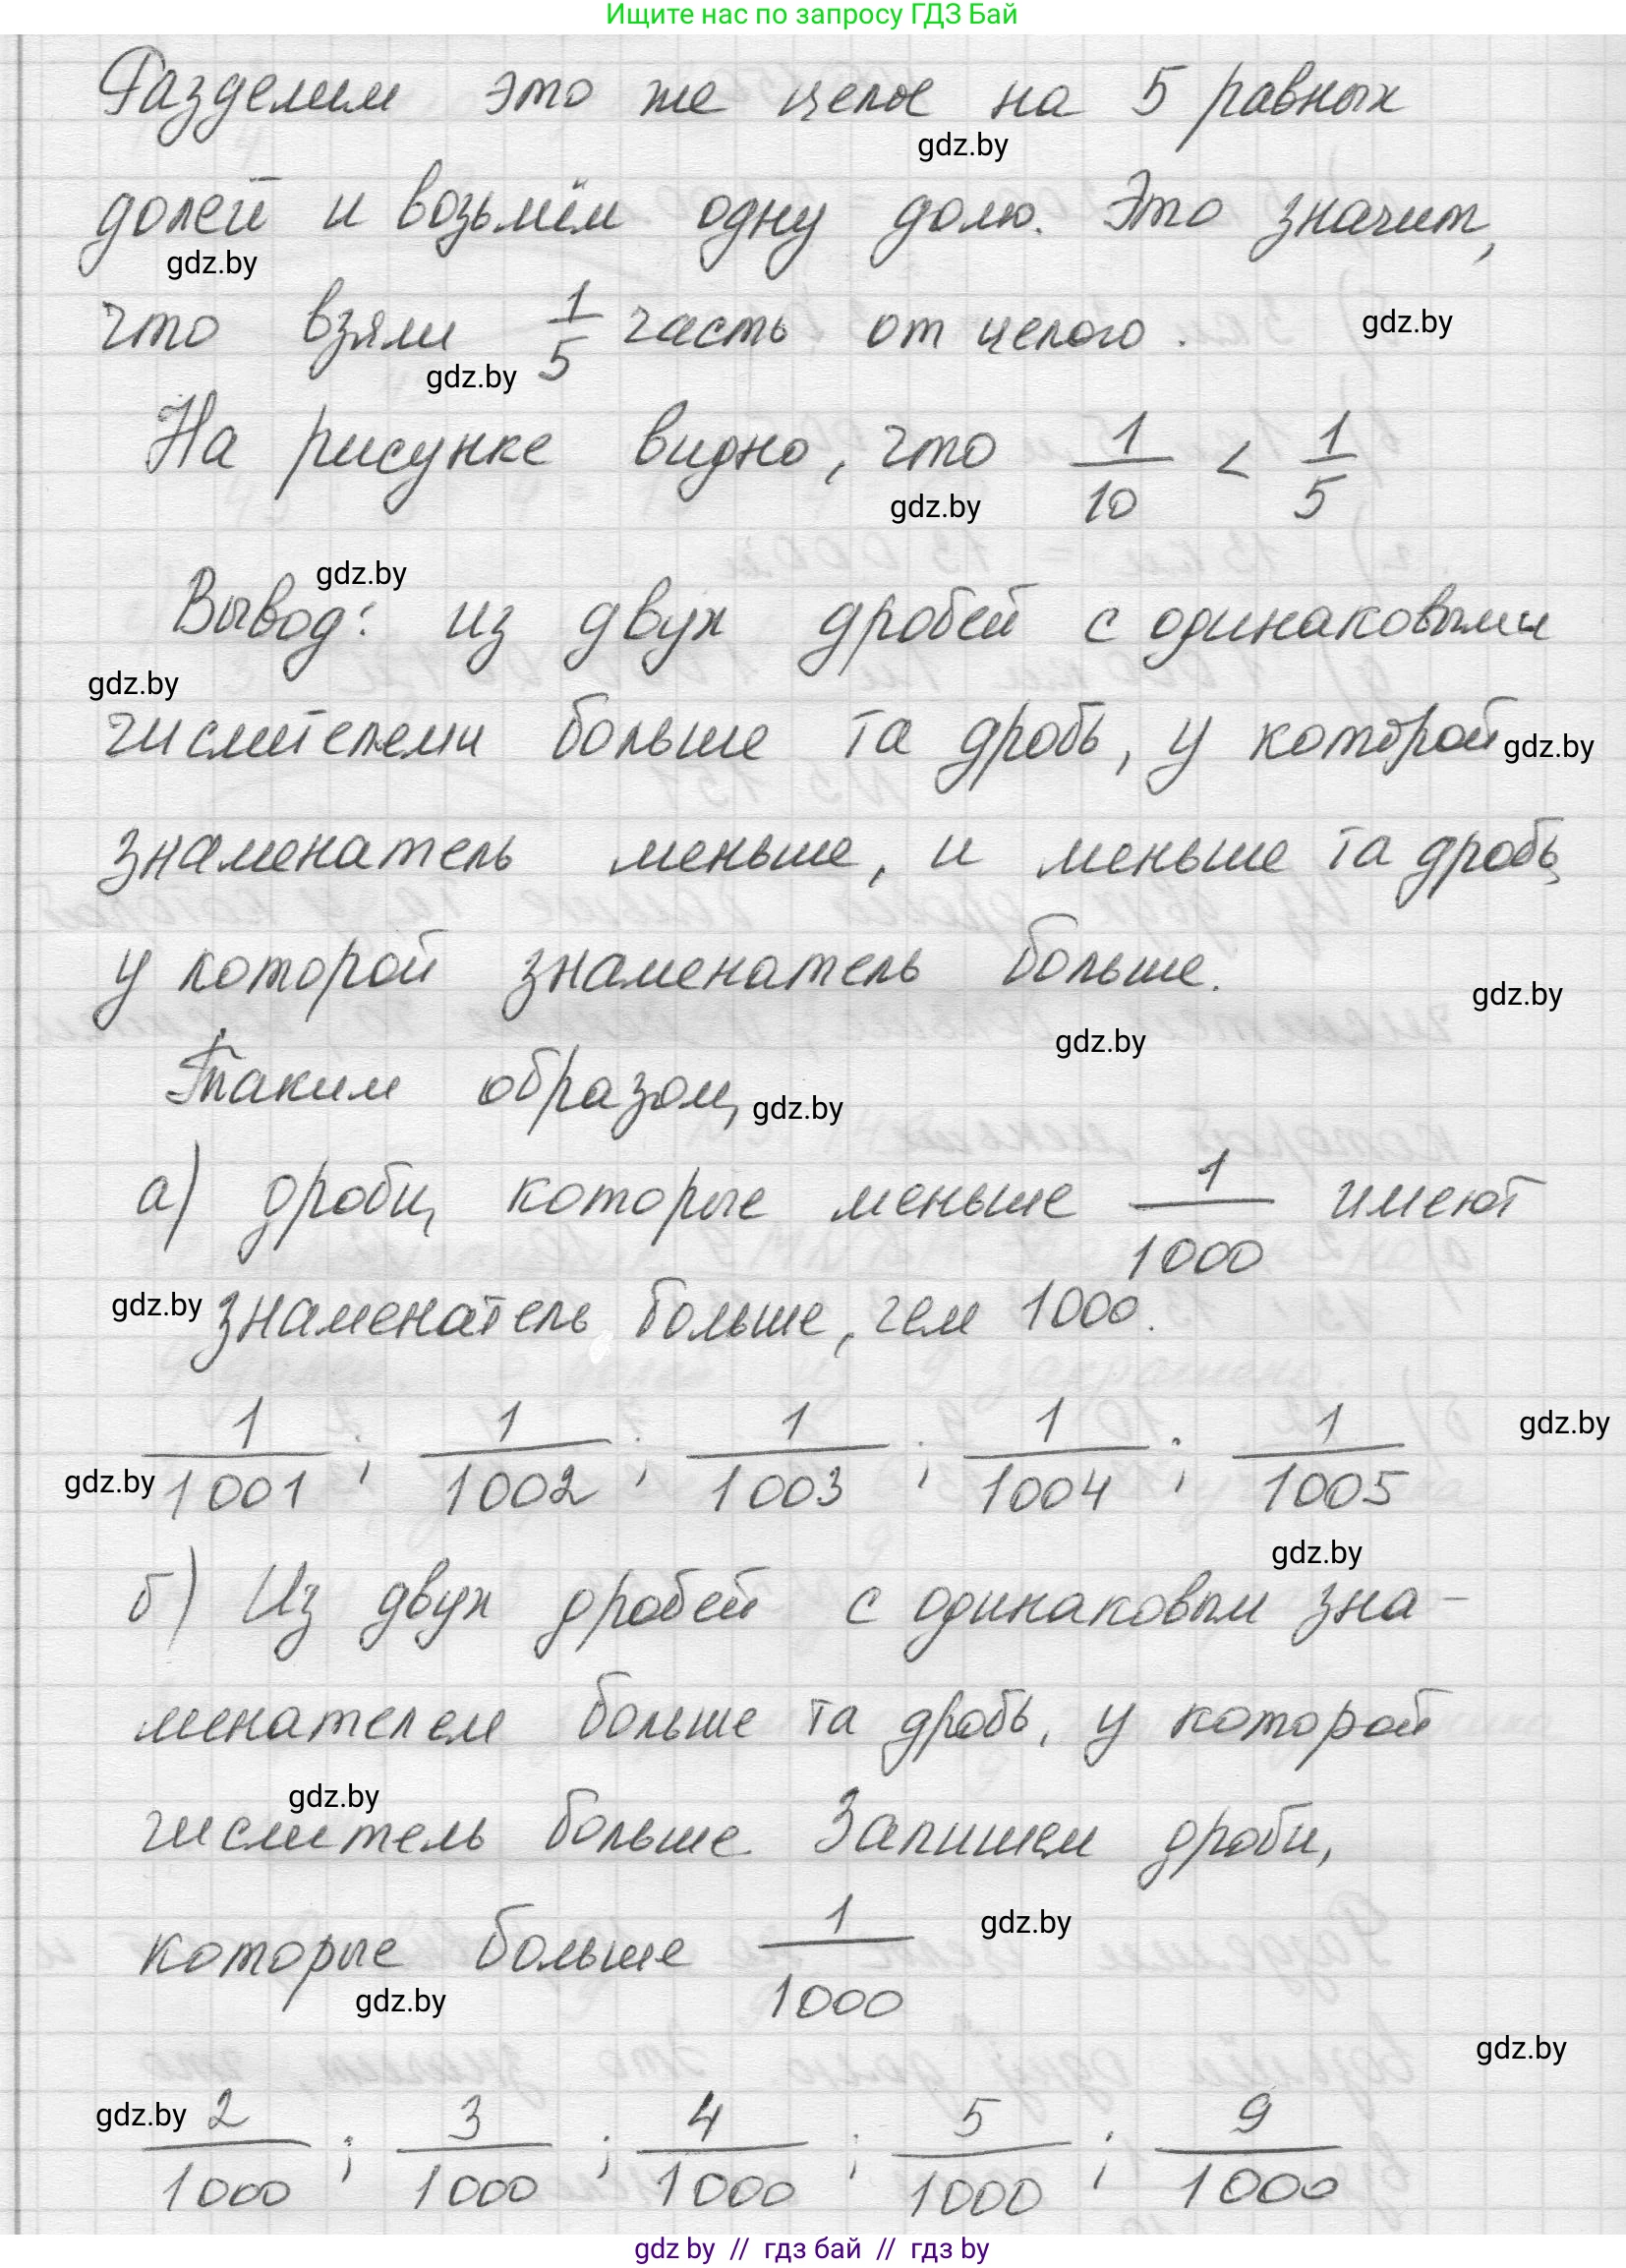 Ищите нас по запросу ГДЗ Бай
Разделим это же целое на 5 равных
gdz.by
долей и возьмём одну долю. Это значит,
gdz.by
что взяли 1/5 часть от целого.
gdz.by
gdz.by
На рисунке видно, что 1/10 < 1/5
gdz.by
gdz.by
Вывод: из двух дробей с одинаковыми
gdz.by
числителеми больше та дробь, у которой
gdz.by
знаменатель меньше, и меньше та дробь,
у которой знаменатель больше.
gdz.by
gdz.by
Таким образом,
gdz.by
а) дроби, которые меньше 1/1000 имеют
gdz.by
знаменатель больше, чем 1000.
1/1001 ; 1/1002 ; 1/1003 ; 1/1004 ; 1/1005
gdz.by
gdz.by
gdz.by
б) Из двух дробей с одинаковым зна-
менателем больше та дробь, у которой
gdz.by
числитель больше. Запишем дроби,
которые больше 1/1000
gdz.by
gdz.by
gdz.by
gdz.by
2/1000 ; 3/1000 ; 4/1000 ; 5/1000 ; 9/1000
gdz by // гдз бай // гдз by